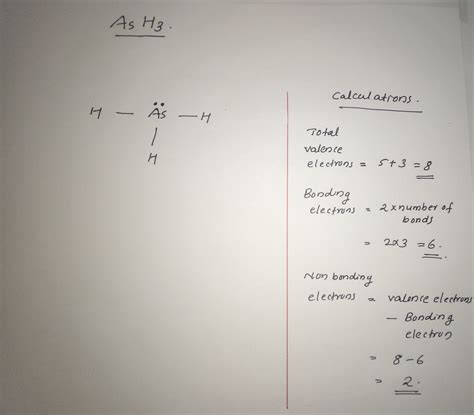 As H3.
H — As — H
H
Calculatrons.
Total
valence
electrons = 5+3 = 8
Bonding
electrons = 2 x number of
bonds
= 2x3 = 6.
Non bonding
electrons = valence electrons
— Bonding
electron
= 8-6
= 2.